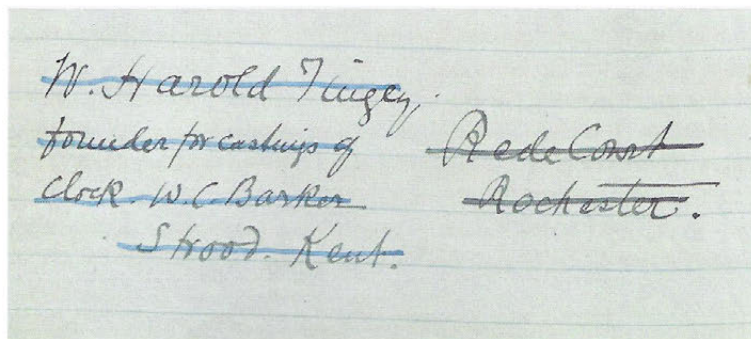 W. Harold Tingey.
founder for castings of
Clock. W. C. Barker
Strood. Kent.
Rede Court
Rochester.